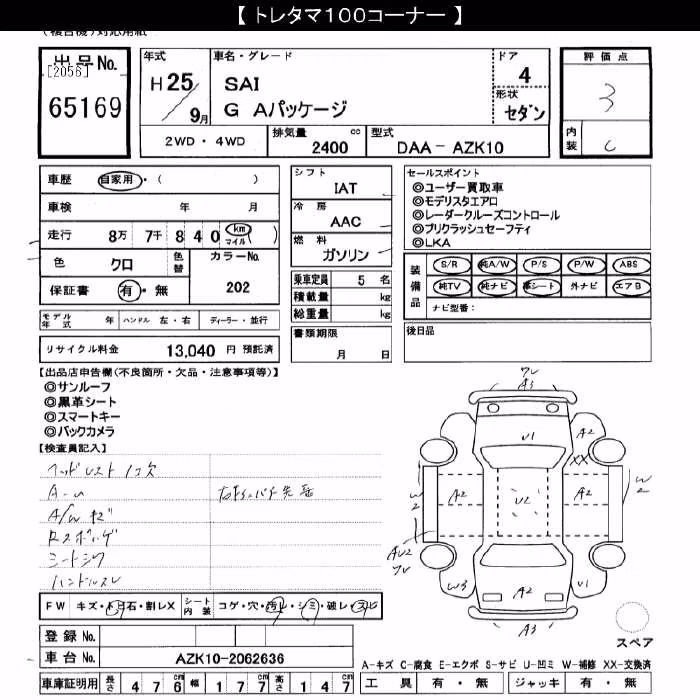 【 トレタマ100コーナー 】
出品No.
[2056]
65169
年式
H25
9月
車名・グレード
SAI
G Aパッケージ
ドア
4
形状
セダン
評価点
3
内装
C
2WD・4WD
排気量 cc
2400
型式
DAA-AZK10
車歴 自家用・( )
車検 年 月
走行 8万 7千 8 4 0 km マイル ( )
色 クロ 色替
カラーNo.
202
保証書 有・無
シフト
IAT
冷房
AAC
燃料
ガソリン
乗車定員 5 名
積載量 kg
総重量 kg
書類期限
月 日
セールスポイント
◎ユーザー買取車
◎モデリスタエアロ
◎レーダークルーズコントロール
◎プリクラッシュセーフティ
◎LKA
装備品
S/R 純A/W P/S P/W ABS
純TV 純ナビ 革シート 外ナビ エアB
ナビ型番:
後日品
モデル年式 年 ハンドル 左・右 ディーラー・並行
リサイクル料金 13,040 円 預託済
【出品店申告欄(不良箇所・欠品・注意事項等)】
◎サンルーフ
◎黒革シート
◎スマートキー
◎バックカメラ
【検査員記入】
ヘッドレスト1コ欠
A-U
A/Wキズ
シートシワ
ハンドルスレ
FW キズ・トビ石・割レX シート内装 コゲ・穴・汚レ・シミ・破レ・スレ
登録No.
車台No. AZK10-2062636
車庫証明用 長さ 4 7 6 cm 幅 1 7 7 cm 高さ 1 4 7 cm
A3
U1
A2
XX
W2
A2
U2
A2
W2
AU2
W3
A2
U1
A3
スペア
A-キズ C-腐食 E-エクボ S-サビ U-凹ミ W-補修 XX-交換済
工具 有・無 ジャッキ 有・無